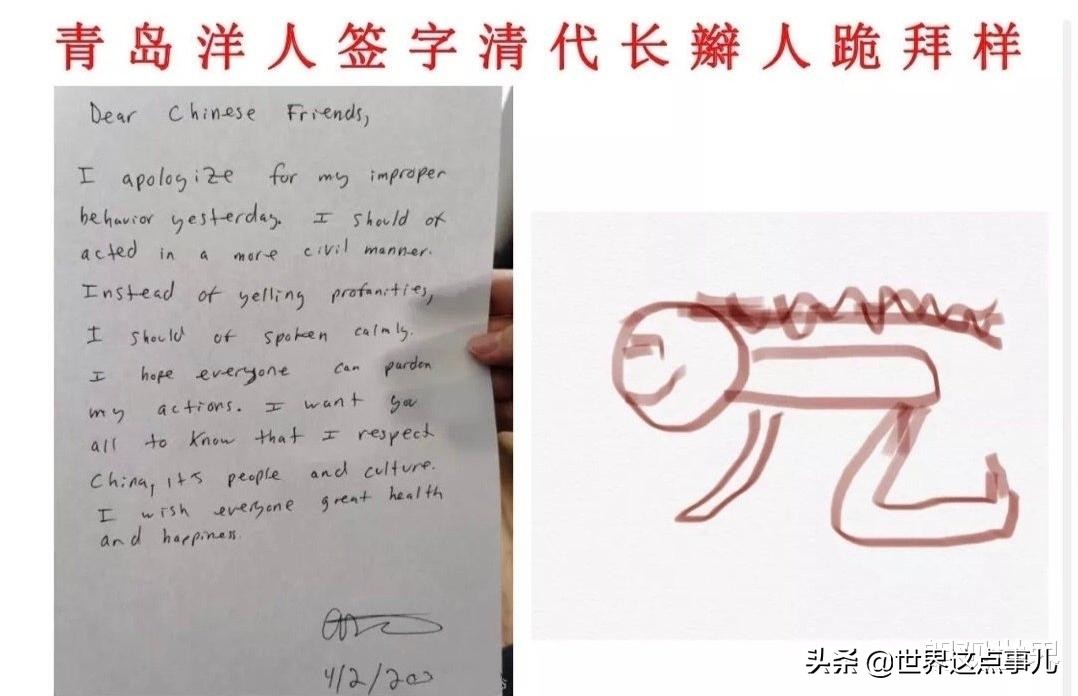 青岛洋人签字清代长辮人跪拜样
Dear Chinese Friends,
I apologize for my improper
behavior yesterday. I should of
acted in a more civil manner.
Instead of yelling profanities,
I should of spoken calmly.
I hope everyone can pardon
my actions. I want you
all to know that I respect
China, its people and culture.
I wish everyone great health
and happiness.
4/2/20
头条 @世界这点事儿